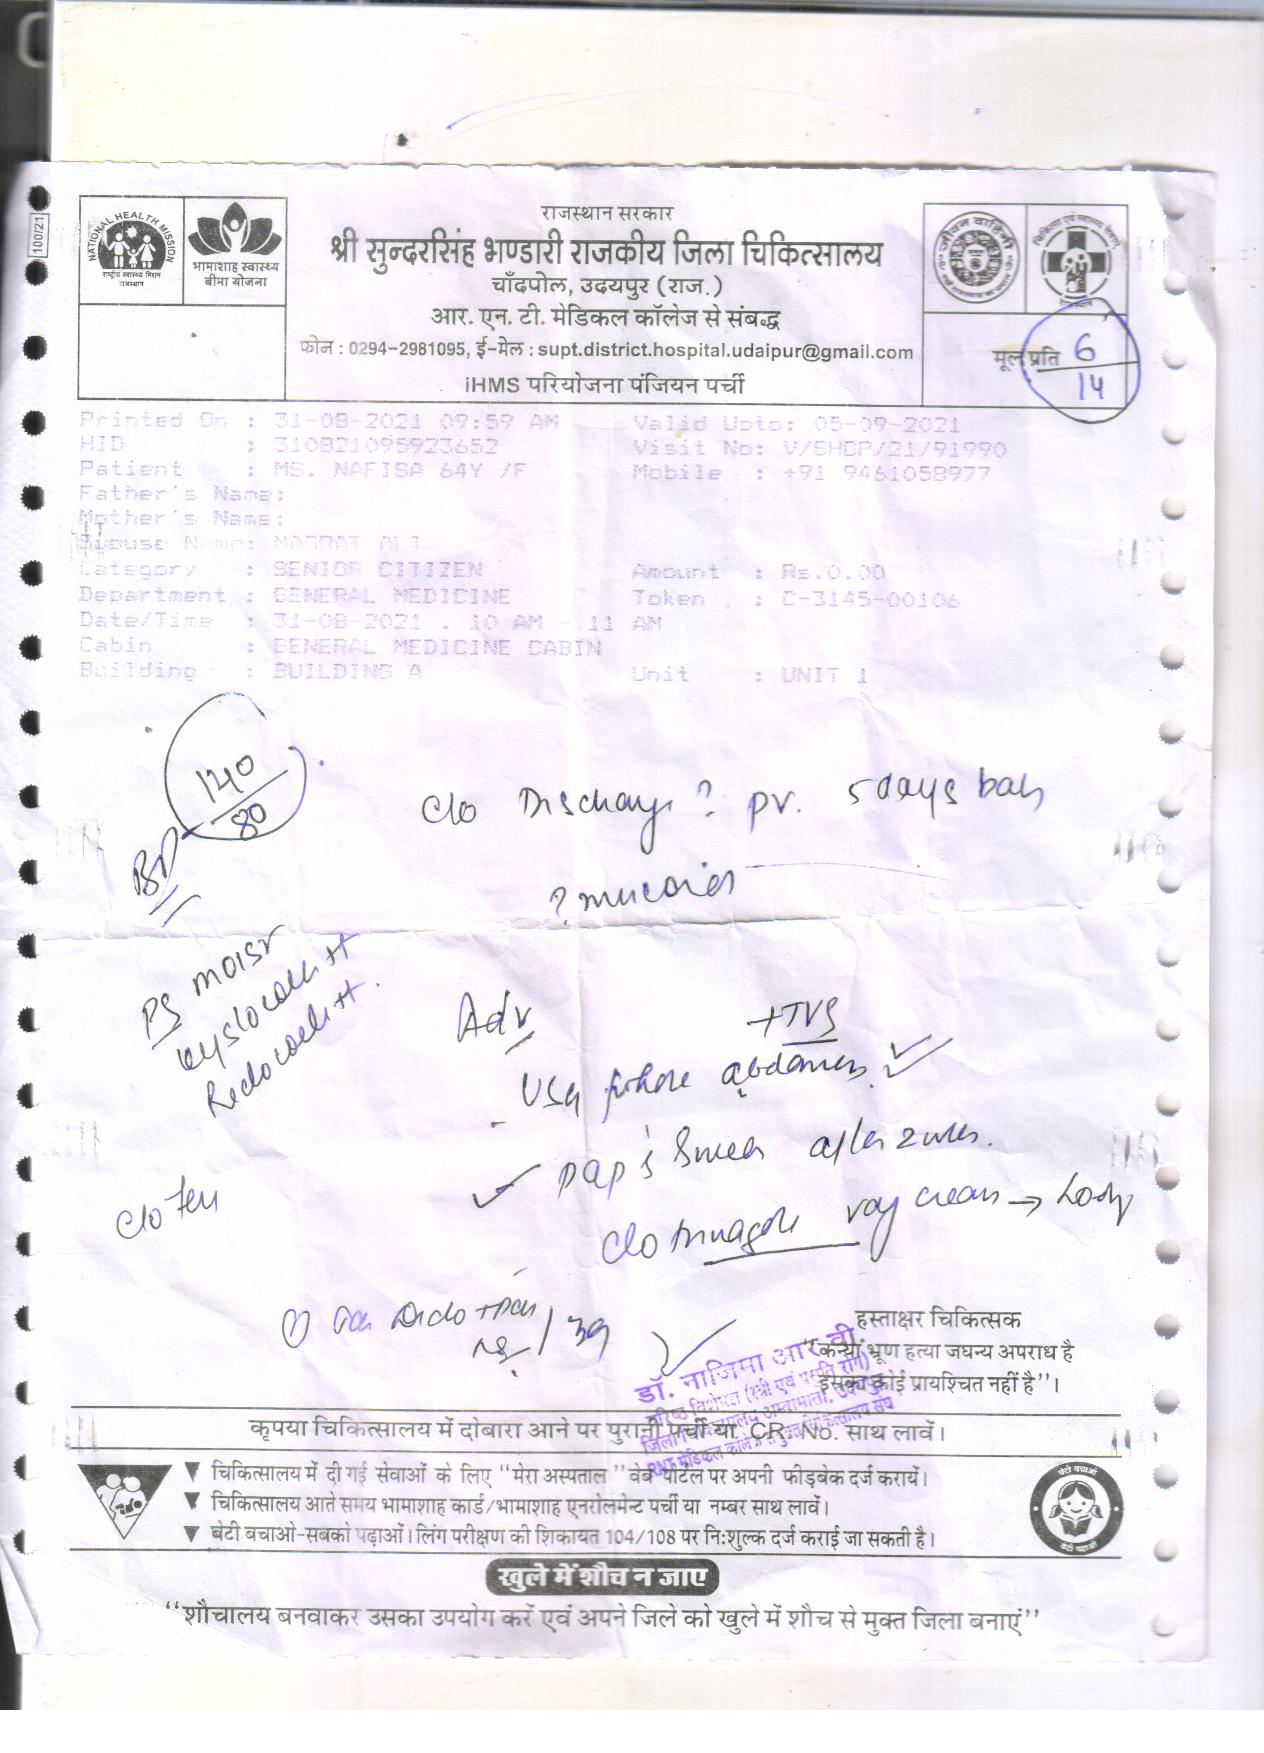 100/21
NATIONAL HEALTH MISSION
राष्ट्रीय स्वास्थ्य मिशन
राजस्थान
भामाशाह स्वास्थ्य
बीमा योजना
राजस्थान सरकार
श्री सुन्दरसिंह भण्डारी राजकीय जिला चिकित्सालय
चाँदपोल, उदयपुर (राज.)
आर. एन. टी. मेडिकल कॉलेज से संबद्ध
फोन : 0294-2981095, ई-मेल : supt.district.hospital.udaipur@gmail.com
iHMS परियोजना पंजियन पर्ची
मूल प्रति 6/14
Printed On : 31-08-2021 09:59 AM Valid Upto: 05-09-2021
HID : 310821095923652 Visit No: V/SHDP/21/91990
Patient : MS. NAFISA 64Y /F Mobile : +91 9461058977
Father's Name:
Mother's Name:
Spouse Name: ALI
Category : SENIOR CITIZEN Amount : Rs.0.00
Department : GENERAL MEDICINE Token : C-3145-00106
Date/Time : 31-08-2021 . 10 AM - 11 AM
Cabin : GENERAL MEDICINE CABIN
Building : BUILDING A Unit : UNIT 1
BP 140/80
c/o Discharge ? pv. 5 days back
? mucoid
PS moist
cystocele ++
Rectocele ++
Adv
+TVS
USG whole abdomen
pap's Smear after
Clotrimazole vag cream →
c/o
हस्ताक्षर चिकित्सक
"कन्या भ्रूण हत्या जघन्य अपराध है
इसका कोई प्रायश्चित नहीं है"।
डॉ. नाजिमा आर वी
कृपया चिकित्सालय में दोबारा आने पर पुरानी पर्ची या CR. No. साथ लावें।
▼ चिकित्सालय में दी गई सेवाओं के लिए "मेरा अस्पताल" वेब पोर्टल पर अपनी फीडबेक दर्ज करायें।
▼ चिकित्सालय आते समय भामाशाह कार्ड/भामाशाह एनरोलमेन्ट पर्ची या नम्बर साथ लावें।
▼ बेटी बचाओ-सबको पढ़ाओं। लिंग परीक्षण की शिकायत 104/108 पर नि:शुल्क दर्ज कराई जा सकती है।
खुले में शौच न जाए
"शौचालय बनवाकर उसका उपयोग करें एवं अपने जिले को खुले में शौच से मुक्त जिला बनाएं"